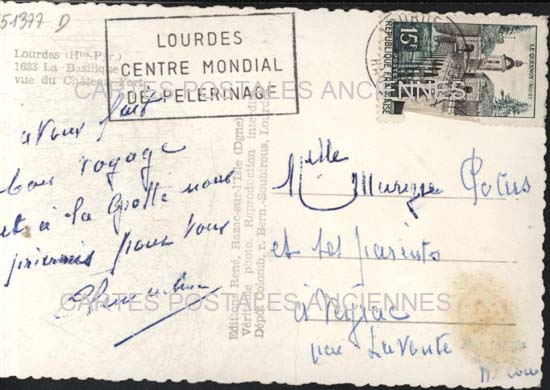 51377 D
Lourdes (Htes-Pyr.)
1623 La Basilique
vue du Château Fort
LOURDES
CENTRE MONDIAL
DE PÉLERINAGE
15F
POSTES
REPUBLIQUE FRANÇAISE
LE QUESNOY (NORD)
CARTES POSTALES ANCIENNES
avons fait
bon voyage
et à la Grotte nous
prierons pour vous
Editions René, Razac-sur-l'Isle (Dgne)
Véritable photo. Reproduction interdite
Dépôt Colomb, r. Bern.-Soubirous, Lourdes
Mlle
et ses parents
à
par Lavoute
CARTES POSTALES ANCIENNES